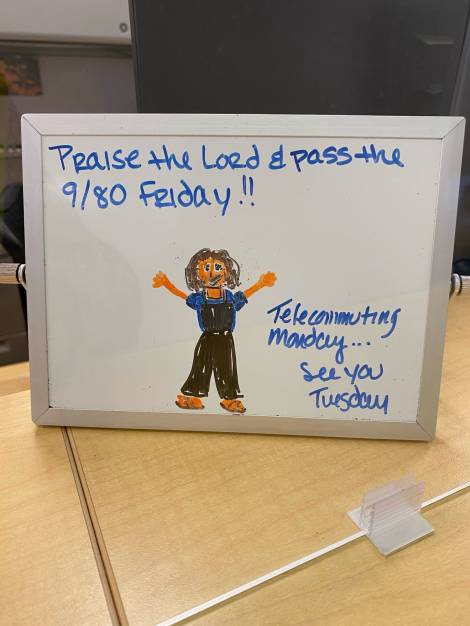 Praise the Lord & pass the
9/80 Friday!!
Telecommuting
Monday...
See you
Tuesday